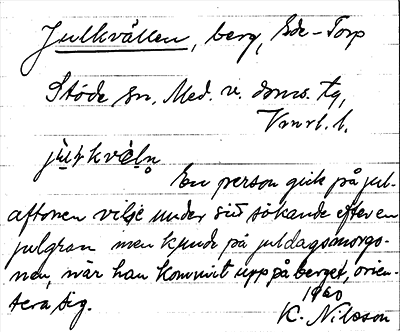 Julkvällen, berg, Ede-Torp
Stöde sn. Med. v. doms. tg,
Vnrl. l.
En person gick på jul-
aftonen vilse under sitt sökande efter en
julgran men kunde på juldagsmorgo-
nen, när han kommit upp på berget, orien-
tera sig.
1960
K. Nilsson